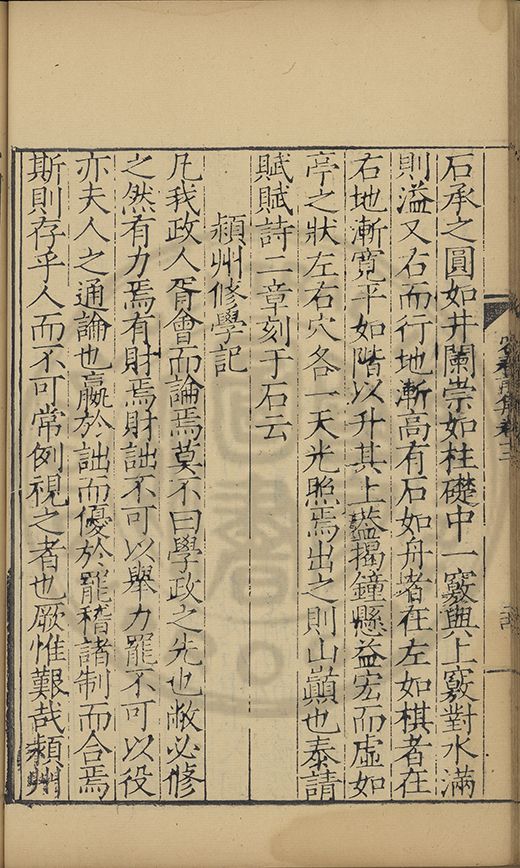 石承之圓如井闌崇如柱礎中一竅與上竅對水滿
則溢又右而行地漸高有石如舟者在左如棋者在
右地漸寬平如階以升其上益揭鐘懸益宏而虛如
亭之狀左右穴各一天光照焉出之則山巔也泰請
賦賦詩二章刻于石云
潁州修學記
凡我政人胥會而論焉莫不曰學政之先也敝必修
之然有力焉有財焉財詘不可以舉力罷不可以役
亦夫人之通論也嬴於詘而優於罷稽諸制而合焉
斯則存乎人而不可常例視之者也厥惟艱哉潁州